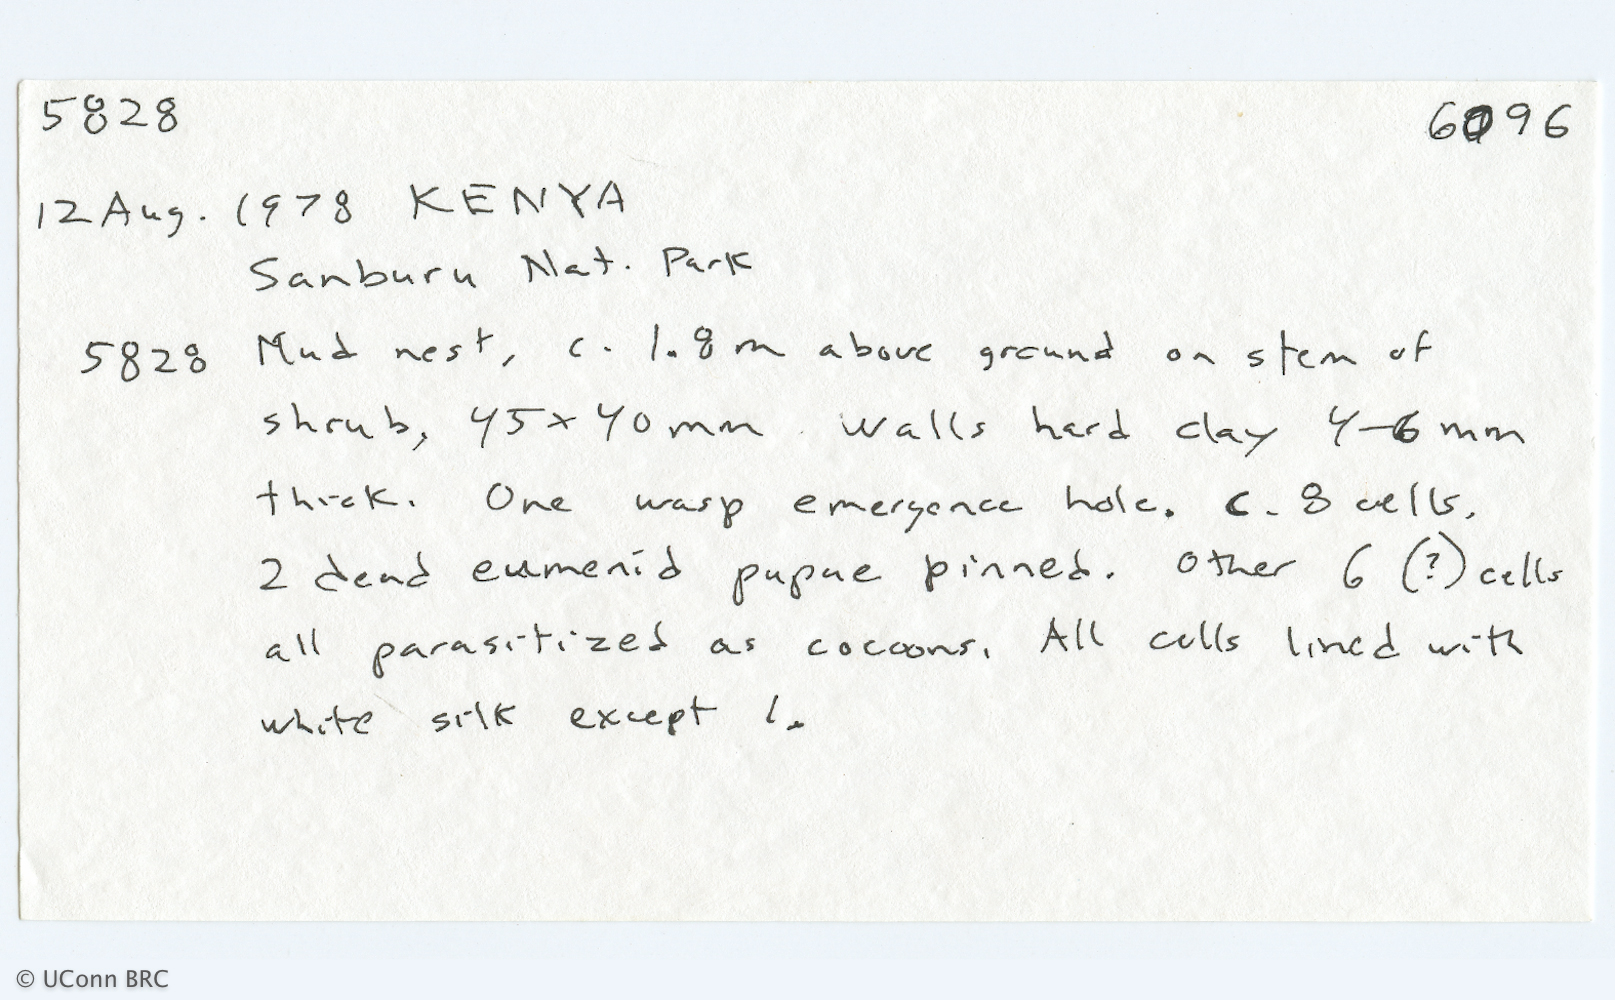 5828 6096
12 Aug. 1978 KENYA
Sanburu Nat. Park
5828 Mud nest, c. 1.8 m above ground on stem of
shrub, 45 x 40 mm. Walls hard clay 4-6 mm
thick. One wasp emergence hole. c. 8 cells.
2 dead eumenid pupae pinned. Other 6 (?) cells
all parasitized as cocoons. All cells lined with
white silk except 1.
© UConn BRC